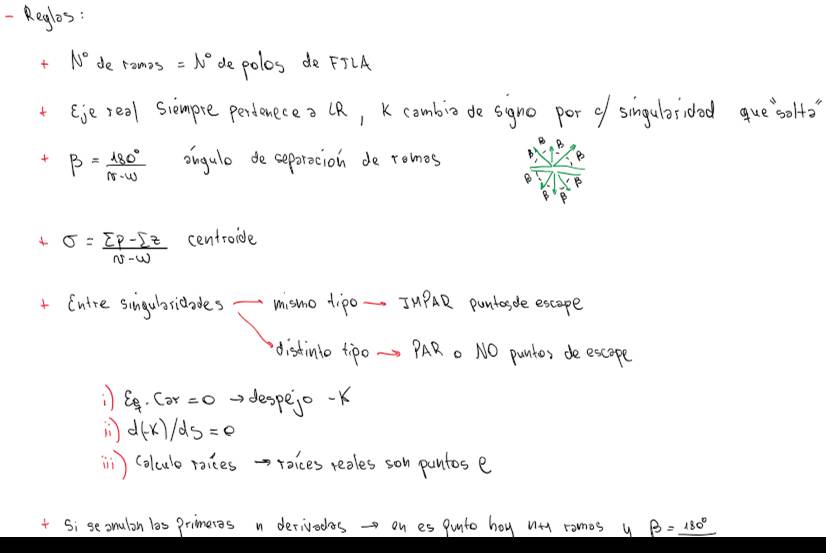 - Reglas:
+ N° de ramas = N° de polos de FTLA
+ Eje real siempre pertenece a LR, K cambia de signo por c/ singularidad que "salta"
+ β = 180° / (n-w) ángulo de separación de ramas
β β β β β β β β
+ σ = (Σp - Σz) / (n-w) centroide
+ Entre singularidades → mismo tipo → IMPAR puntos de escape
→ distinto tipo → PAR o NO puntos de escape
i) Eq. Car = 0 → despejo -K
ii) d(-K)/ds = 0
iii) Calculo raíces → raíces reales son puntos e
+ Si se anulan las primeras n derivadas → en es punto hay n+1 ramas y β = 180°